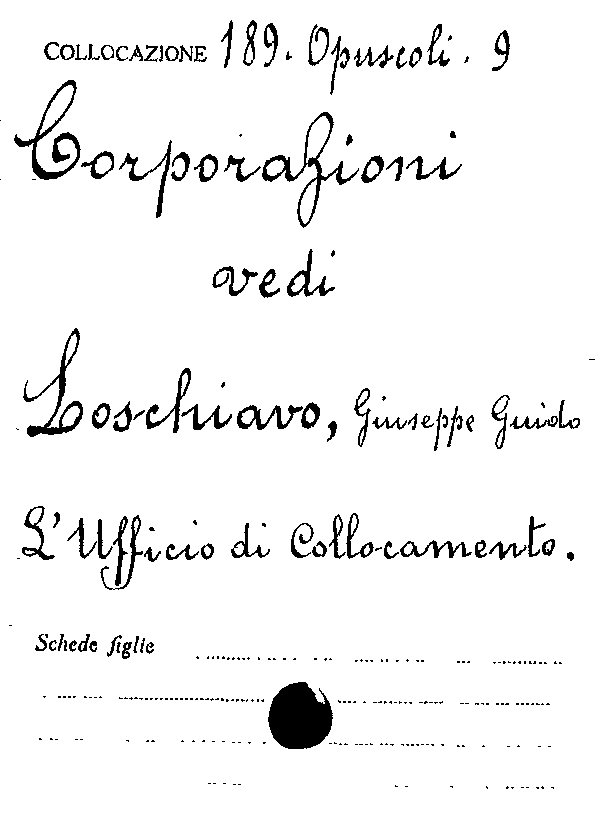 COLLOCAZIONE 189. Opuscoli. 9
Corporazioni
vedi
Loschiavo, Giuseppe Guido
L'Ufficio di Collocamento.
Schede figlie